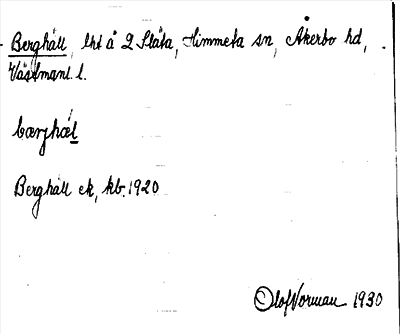 Berghäll, lht å 2 Slåta, Himmeta sn, Åkerbo hd,
Västmanl. l.
bærjhæl
Berghäll ek, kb. 1920
Olof Norman 1930